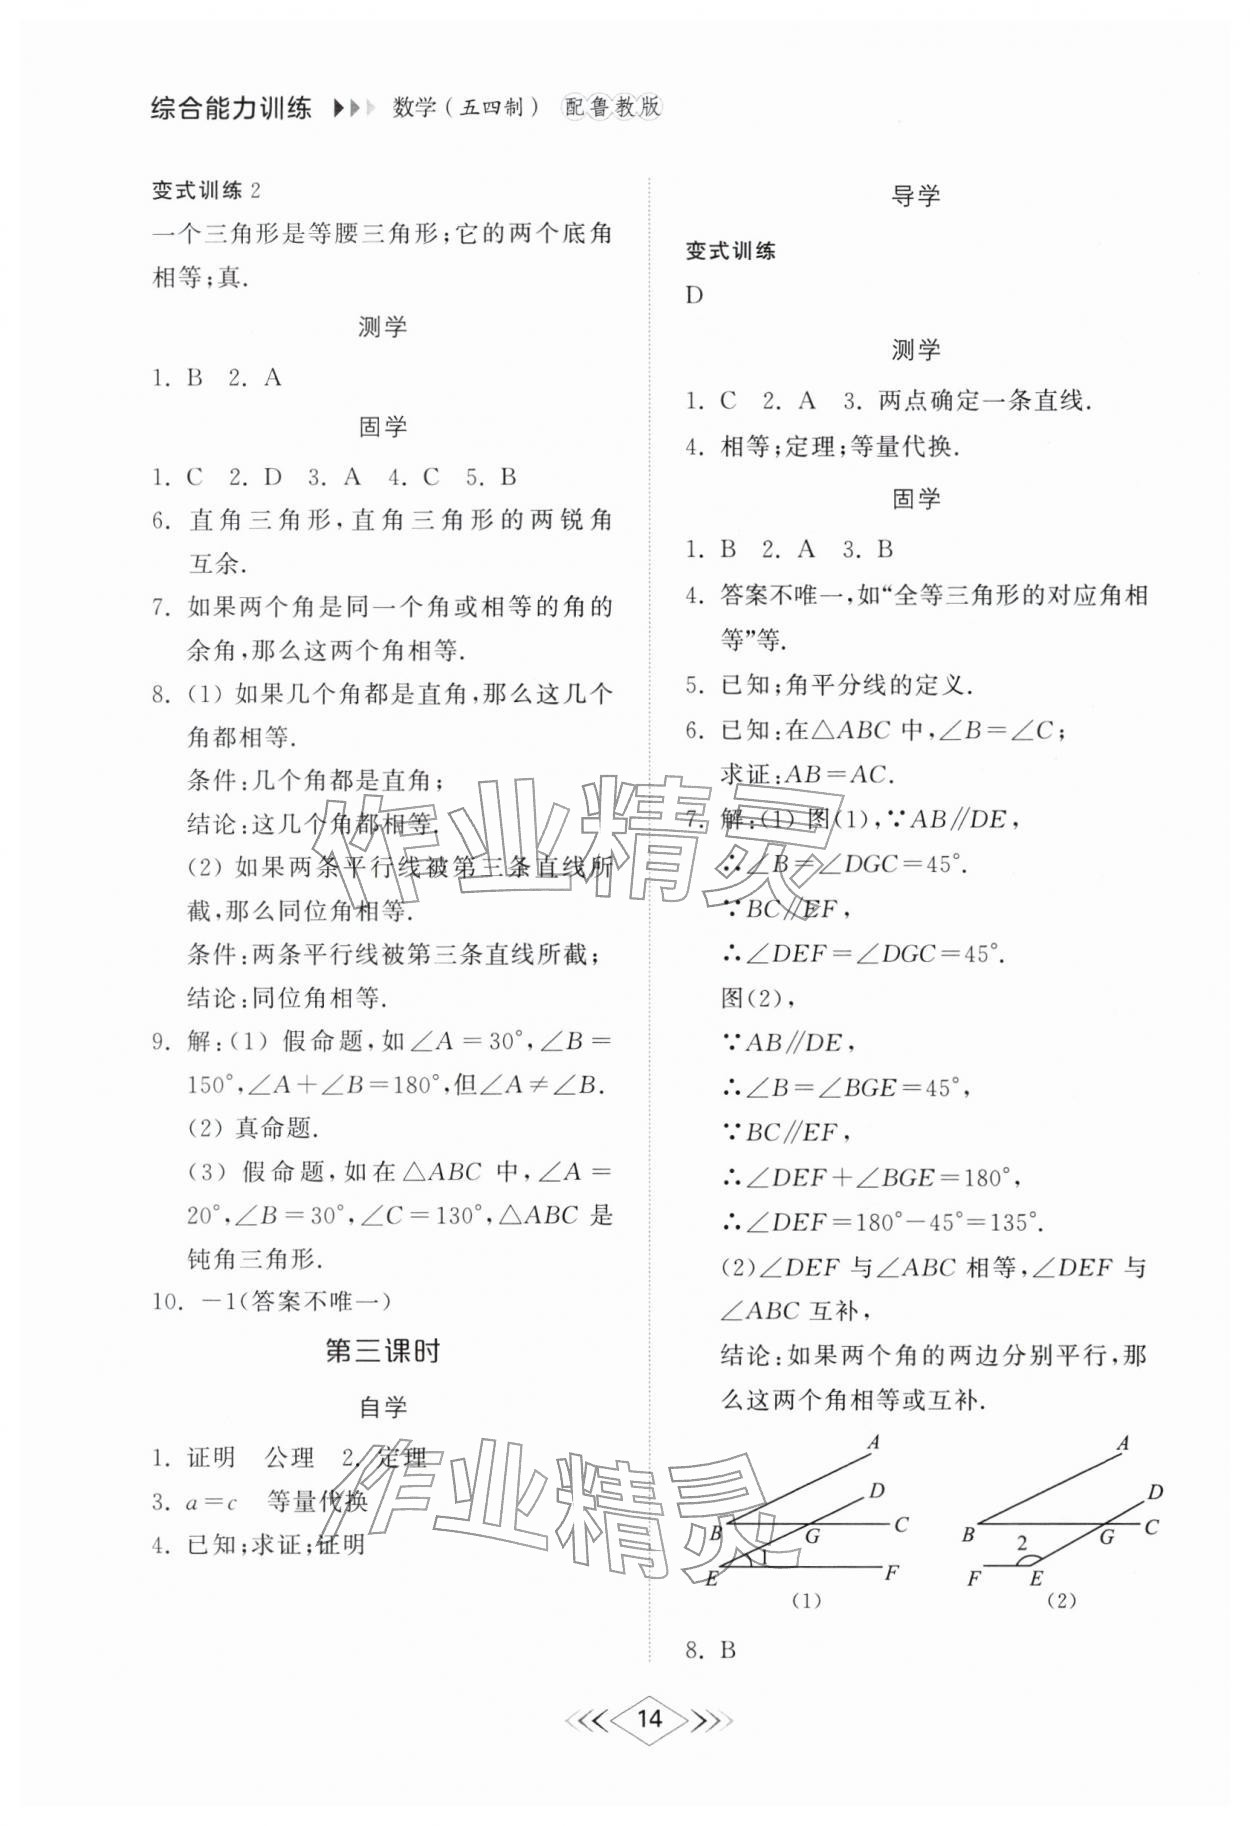 综合能力训练 数学(五四制) 配鲁教版
变式训练 2
一个三角形是等腰三角形;它的两个底角
相等;真.
测学
1. B 2. A
固学
1. C 2. D 3. A 4. C 5. B
6. 直角三角形,直角三角形的两锐角
互余.
7. 如果两个角是同一个角或相等的角的
余角,那么这两个角相等.
8. (1) 如果几个角都是直角,那么这几个
角都相等.
条件:几个角都是直角;
结论:这几个角都相等.
(2) 如果两条平行线被第三条直线所
截,那么同位角相等.
条件:两条平行线被第三条直线所截;
结论:同位角相等.
9. 解:(1) 假命题,如∠A=30°,∠B=
150°,∠A+∠B=180°,但∠A≠∠B.
(2) 真命题.
(3) 假命题,如在△ABC 中,∠A=
20°,∠B=30°,∠C=130°,△ABC 是
钝角三角形.
10. -1(答案不唯一)
第三课时
自学
1. 证明 公理 2. 定理
3. a=c 等量代换
4. 已知;求证;证明
导学
变式训练
D
测学
1. C 2. A 3. 两点确定一条直线.
4. 相等;定理;等量代换.
固学
1. B 2. A 3. B
4. 答案不唯一,如“全等三角形的对应角相
等”等.
5. 已知;角平分线的定义.
6. 已知:在△ABC 中,∠B=∠C;
求证:AB=AC.
7. 解:(1) 图(1),∵AB∥DE,
∴∠B=∠DGC=45°.
∵BC∥EF,
∴∠DEF=∠DGC=45°.
图(2),
∵AB∥DE,
∴∠B=∠BGE=45°,
∵BC∥EF,
∴∠DEF+∠BGE=180°,
∴∠DEF=180°-45°=135°.
(2)∠DEF 与∠ABC 相等,∠DEF 与
∠ABC 互补,
结论:如果两个角的两边分别平行,那
么这两个角相等或互补.
A
D
B G C
1
E F
(1)
A
D
B G C
2
F E
(2)
8. B
14
作业精灵
作业精灵